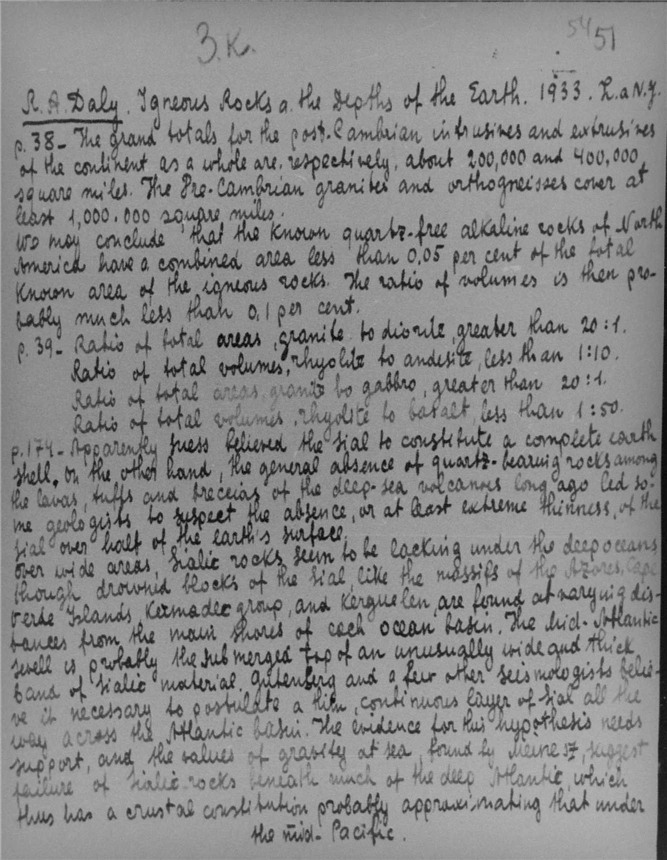 3.K.
54 51
R.A. Daly. Igneous Rocks a. the Depths of the Earth. 1933. L.a N.Y.
p. 38 - The grand totals for the post-Cambrian intrusives and extrusives
of the continent as a whole are, respectively, about 200,000 and 400,000
square miles. The Pre-Cambrian granites and orthogneisses cover at
least 1,000.000 square miles.
We may conclude that the known quartz-free alkaline rocks of North
America have a combined area less than 0,05 per cent of the total
known area of the igneous rocks. The ratio of volumes is then pro-
bably much less than 0,1 per cent.
p. 39 - Ratio of total areas, granite to diorite, greater than 20:1.
Ratio of total volumes, rhyolite to andesite, less than 1:10.
Ratio of total areas, granite to gabbro, greater than 20:1.
Ratio of total volumes, rhyolite to basalt, less than 1:50.
p.174 - Apparently Suess believed the sial to constitute a complete earth
shell. On the other hand, the general absence of quartz-bearing rocks among
the lavas, tuffs and breccias of the deep-sea volcanoes long ago led so-
me geologists to suspect the absence, or at least extreme thinness, of the
sial over half of the earth's surface.
Over wide areas, sialic rocks seem to be lacking under the deep oceans
though drowned blocks of the sial like the massifs of the Azores, Cape
Verde Islands, Kermadec group, and Kerguelen, are found at varying dis-
tances from the main shores of each ocean basin. The Mid-Atlantic
swell is probably the submerged top of an unusually wide and thick
band of sialic material. Gutenberg and a few other seismologists belie-
ve it necessary to postulate a thin, continuous layer of sial all the
way across the Atlantic basin. The evidence for this hypothesis needs
support, and the values of gravity at sea, found by Meinesz, suggest
failure of sialic rocks beneath much of the deep Atlantic, which
thus has a crustal constitution probably approximating that under
the mid-Pacific.